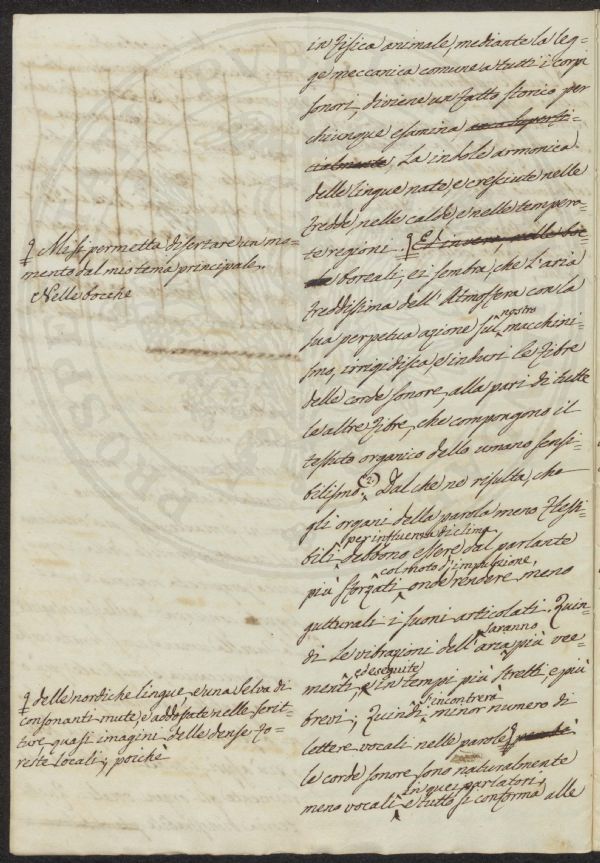 in Fisica animale, mediante la leg-
ge meccanica comune a tutti i corpi
sonori, diviene un Fatto storico per
chiunque esamina
la indole armonica
delle lingue nate, e cresciute nelle
Fredde nelle calde e nelle tempera-
te regioni. Ed invero, nelle
boreali, ei sembra, che l'aria
Freddissima dell'Atmosfera con la
sua perpetua azione sul nostro macchini-
smo, irrigidisca, e induri le Fibre
delle corde sonore, alla pari di tutte
le altre Fibre, che compongono il
tessuto organico dello umano sensi-
bilismo. (2) Dal che ne risulta, che
gli organi della parola meno Flessi-
bili per influenza di clima debbono essere dal parlante
più sforzati col moto d'impulsione, onde rendere meno
gutturali i suoni articolati. Quin-
di le vibrazioni dell'aria saranno più vee-
menti, ed eseguite in tempi più stretti e più
brevi; Quindi s'incontrerà minor numero di
lettere vocali nelle parole perchè
le corde sonore sono naturalmente
meno vocali in quei parlatori, e tutto si conforma alle
q Mi si permetta disertare un mo-
mento dal mio tema principale.
Nelle bocche
q delle nordiche lingue e una selva di
consonanti mute, e addossate nelle scrit-
ture quasi imagini delle dense Fo-
reste locali; poichè